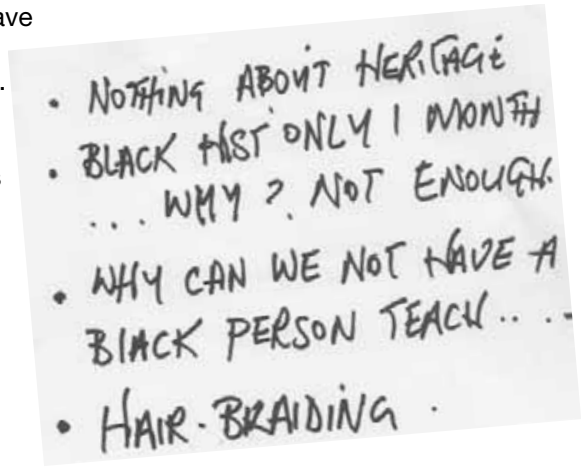 ave
.
s
• NOTHING ABOUT HERITAGE
• BLACK HIST ONLY 1 MONTH
... WHY? NOT ENOUGH.
• WHY CAN WE NOT HAVE A
BLACK PERSON TEACH.. ..
• HAIR-BRAIDING.